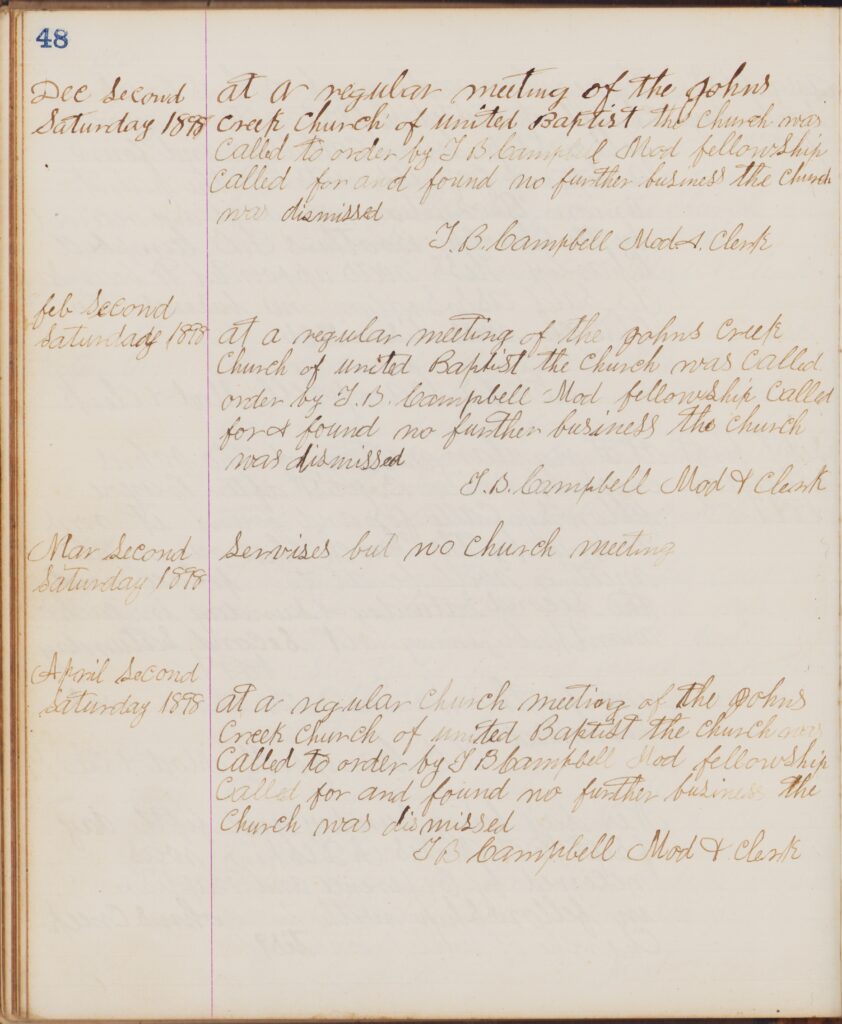 48
Dec Second
Saturday 1898
at a regular meeting of the Johns
Creek Church of united Baptist the Church was
Called to order by T B. Campbell Mod fellowship
Called for and found no further business the Church
was dismissed
T. B. Campbell Mod &. Clerk
feb Second
Saturdady 1898
at a regular meeting of the Johns Creek
Church of united Baptist the Church was Called
order by T. B. Campbell Mod fellowship Called
for & found no further business the Church
was dismissed
T. B. Campbell Mod & Clerk
Mar Second
Saturday 1898
Servises but no Church meeting
April Second
Saturday 1898
at a regular Church meeting of the Johns
Creek Church of united Baptist the Church was
Called to order by T B Campbell Mod fellowship
Called for and found no further business the
Church was dismissed
T B Campbell Mod & Clerk